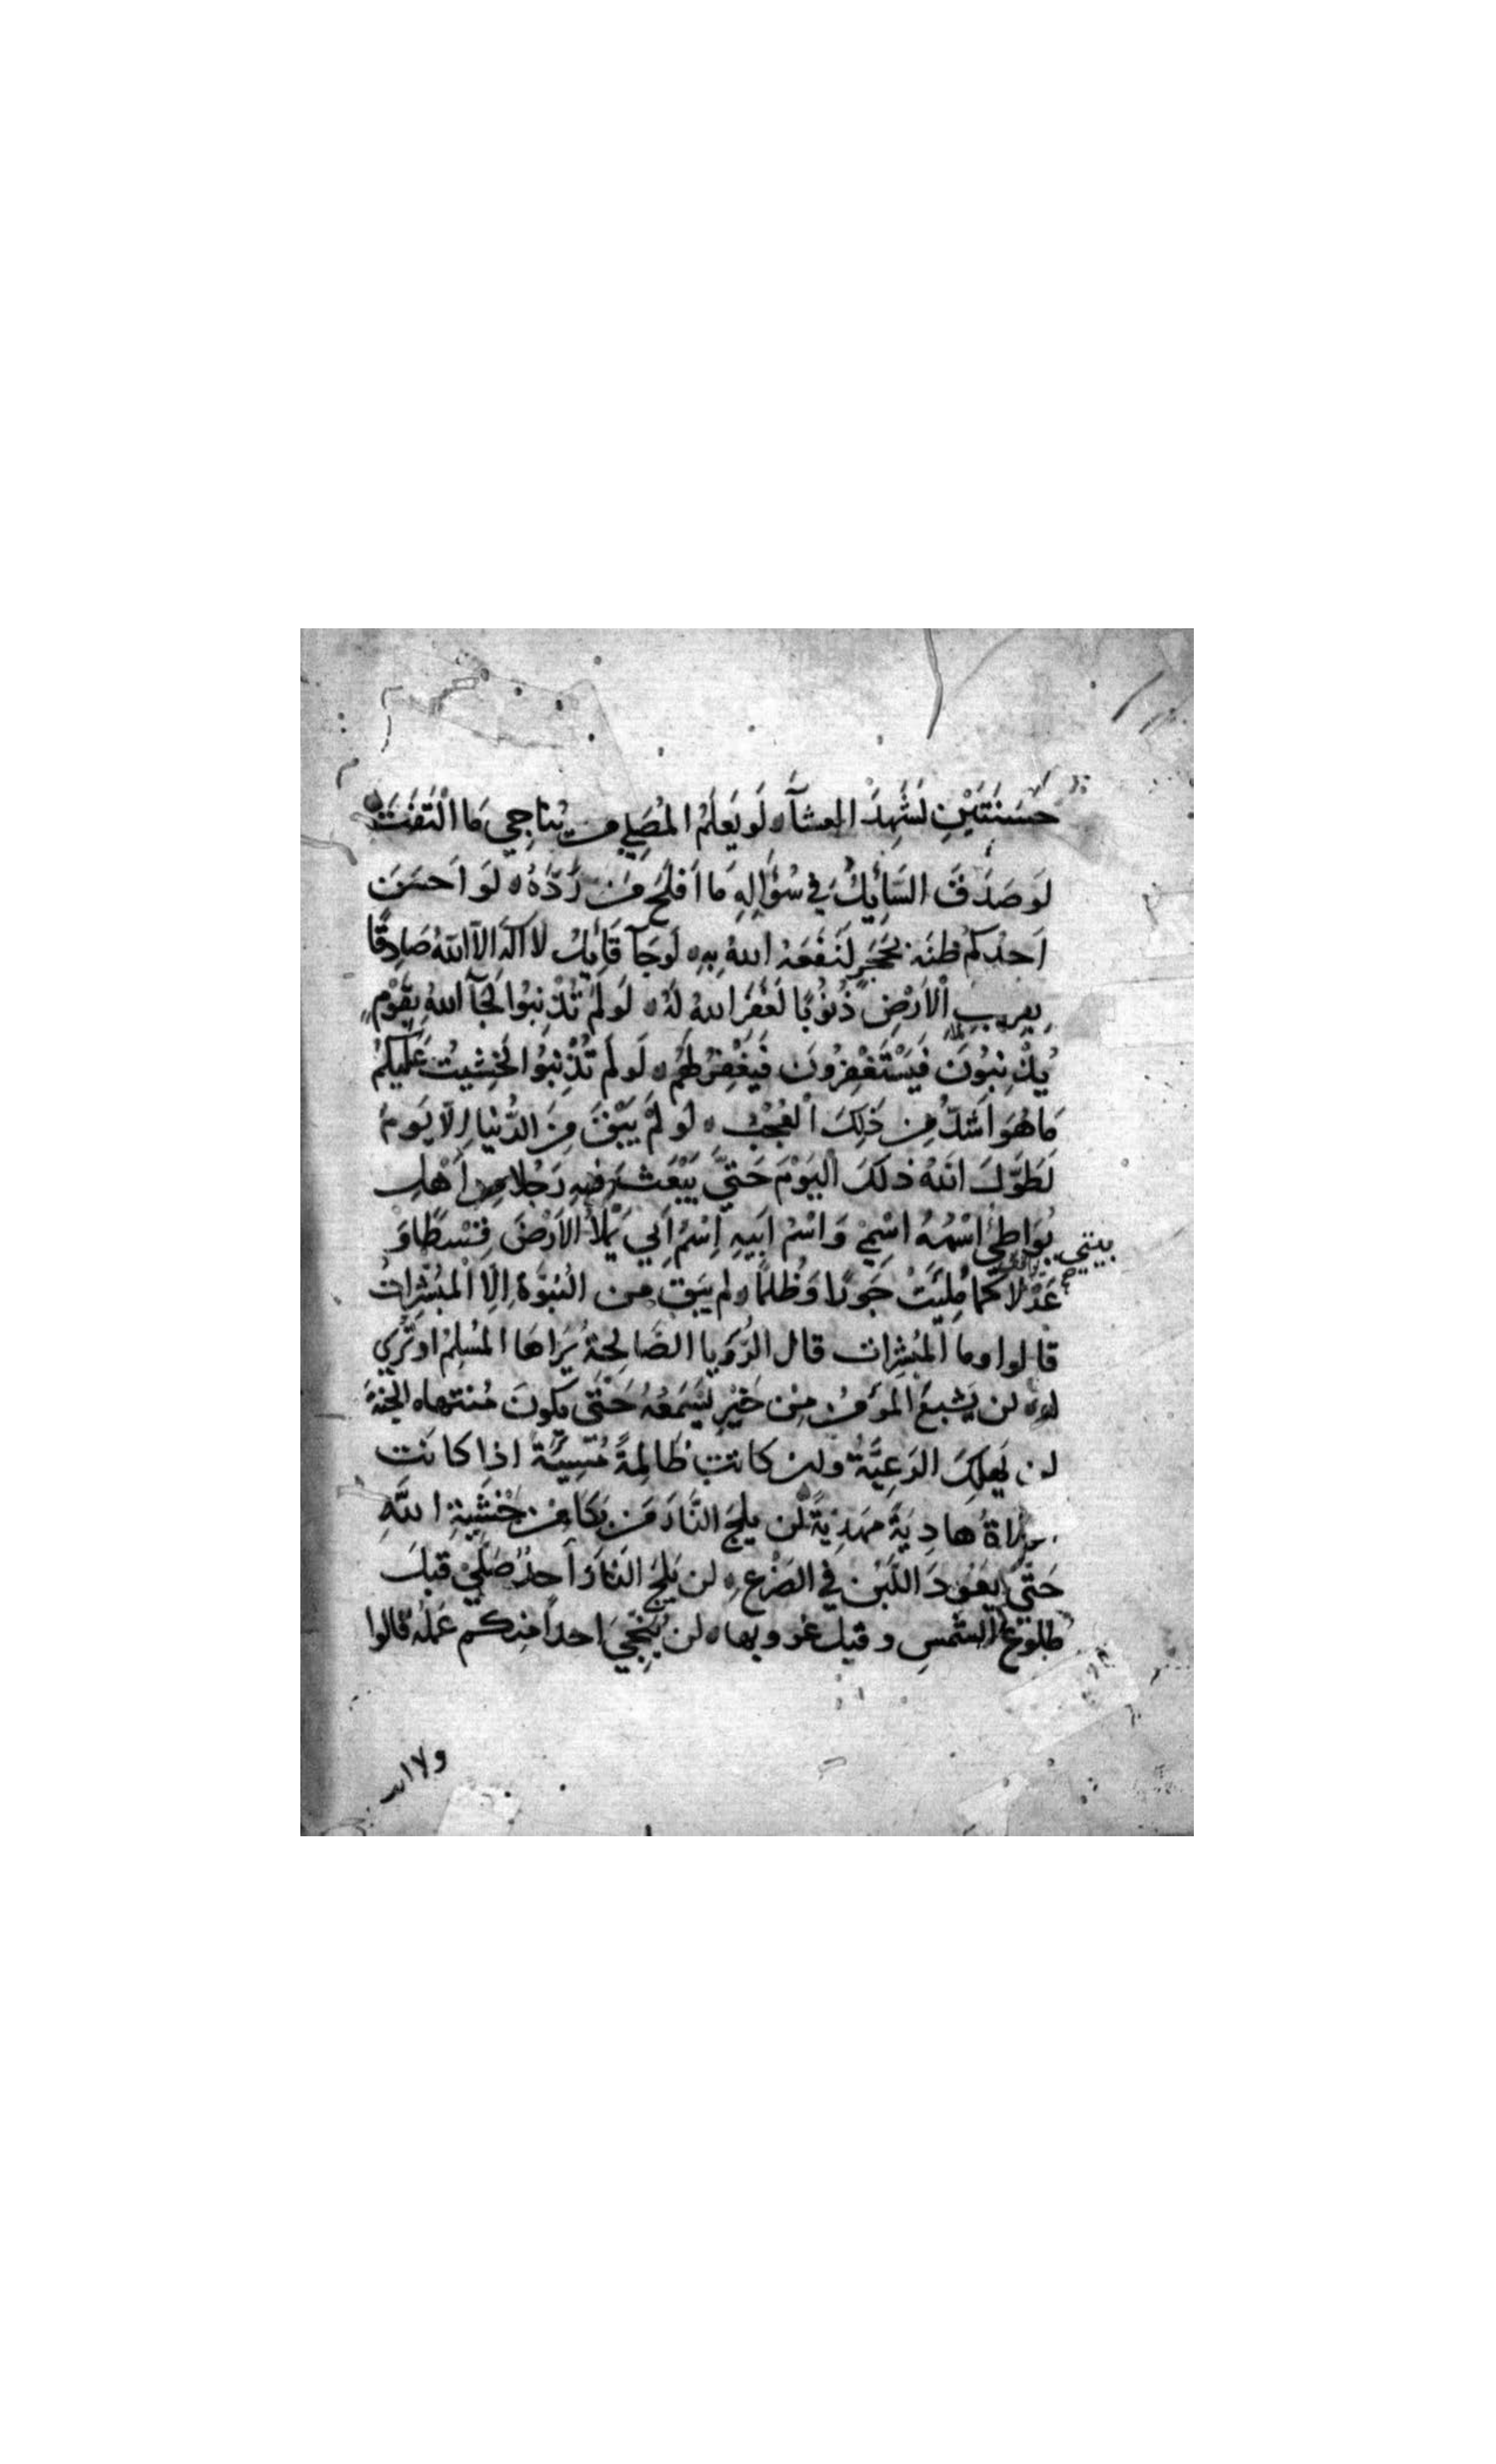 حَسَنَتَيْنِ لَشَهِدَ العشآء لَو يَعلَمُ المُصَلِّي من يُناجي مَا الْتَفَتَ
لَو صَدَقَ السَّايِلُ في سُؤَالِهِ مَا اَفلَحَ مَن رَدَّهُ لَو اَحسَنَ
اَحدُكم ظنَه بحَجَرٍ لَنَفَعَهُ اللهُ بِهِ لَو جَآ قَايِلُ لا اله الا اللهُ صَادِقًا
بِقِرابِ الْاَرْضِ ذُنُوبًا لَغَفَرَ اللهُ لَهُ لَو لَم تُذْنِبُوا لَجَآ اللهُ بِقَوْمٍ
يُذْنِبُونَ فَيَسْتَغْفِرُونَ فَيَغْفِرُ لَهُم لَو لَم تُذْنِبُوا لَخَشِيتُ عَلَيكُم
مَا هُوَ اَشَدُّ مِن ذَلِكَ الْعُجْبُ لَو لَمْ يَبْقَ مِنَ الدُّنيا اِلّا يَومٌ
لَطَوَّلَ اللهُ ذلكَ الْيَوْمَ حَتّى يَبْعَثَ فِيهِ رَجُلا مِن اَهْلِ
بيتي يُوَاطِئُ اسْمُهُ اسْمِي وَاسْمُ اَبِيهِ اِسْمُ اَبِي يَمْلَأُ الاَرْضَ قِسْطًا وَ
عَدْلا كَمَا مُلِيَتْ جَورًا وَظُلمًا لم يبق من النُبوَّةِ اِلّا المُبَشِّراتُ
قالوا وما المُبَشِّرات قال الرُّؤيا الصَّالِحةُ يَرَاهَا المُسْلِمُ او تُرَي
له لن يَشبعَ المؤمنُ مِنْ خَيْرٍ يَسْمَعُهُ حَتّى يكونَ مُنتهاه الجنةَ
لن يَهلِكَ الرَعِيَّةُ وان كانت ظَالِمَةً مُسِيَّةً اذا كانت
الولاة هَادِيَةً مَهدِيَّةً لن يلج النَّارَ مَن بَكَا مِن خَشْيَةِ اللَّهِ
حَتَّى يَعُودَ اللَّبَن في الضَرْعِ لن يَلِجَ النّارَ اَحدٌ صَلّي قبلَ
طلوعِ الشّمسِ وقبل غروبها لن يُنَجِّيَ احدًا منكم عَمله قالوا
ولا انت